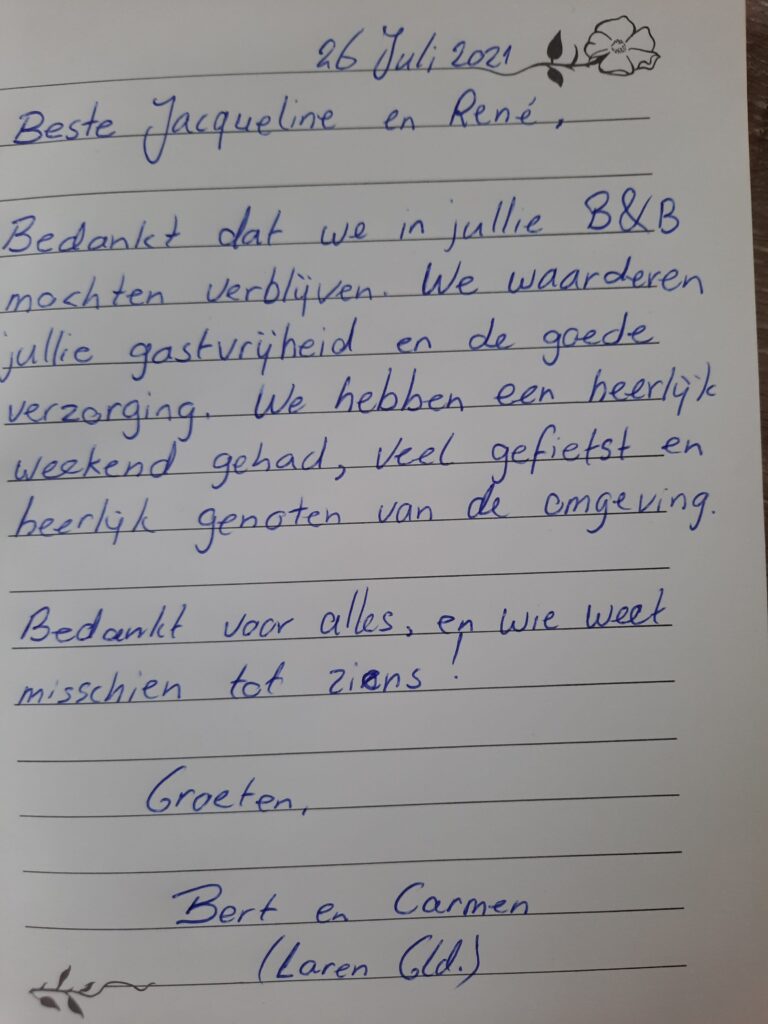 26 Juli 2021
Beste Jacqueline en René,
Bedankt dat we in jullie B&B
mochten verblijven. We waarderen
jullie gastvrijheid en de goede
verzorging. We hebben een heerlijk
weekend gehad, veel gefietst en
heerlijk genoten van de omgeving.
Bedankt voor alles, en wie weet
misschien tot ziens!
Groeten,
Bert en Carmen
(Laren Gld.)